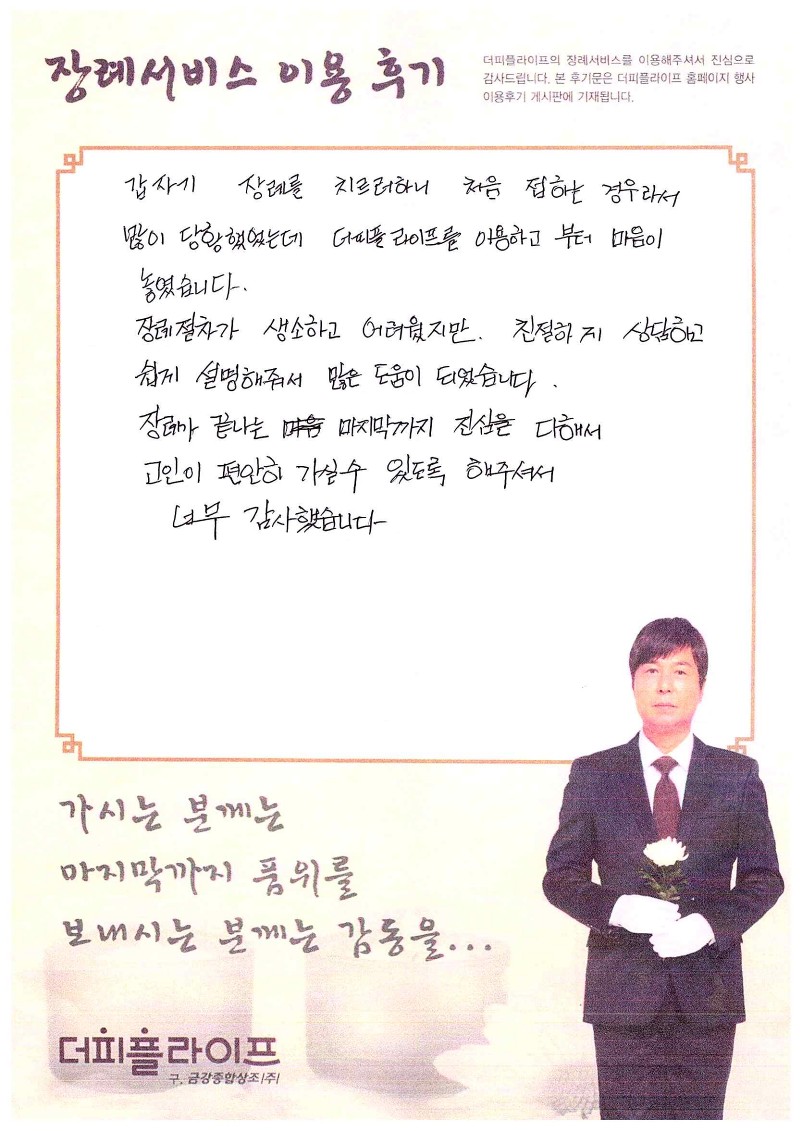 장례서비스 이용 후기
더피플라이프의 장례서비스를 이용해주셔서 진심으로
감사드립니다. 본 후기문은 더피플라이프 홈페이지 행사
이용후기 게시판에 기재됩니다.
갑사기 장례를 치르려하니 처음 접하는 경우라서
많이 당황했었는데 더피플라이프를 이용하고 부터 마음이
놓였습니다.
장례절차가 생소하고 어려웠지만. 친절하게 상담하고
쉽게 설명해줘서 많은 도움이 되었습니다.
장례가 끝나는 마지막까지 진심을 다해서
고인이 편안히 가실수 있도록 해주셔서
너무 감사했습니다-
가시는 분께는
마지막까지 품위를
보내시는 분께는 감동을...
더피플라이프
구. 금강종합상조(주)